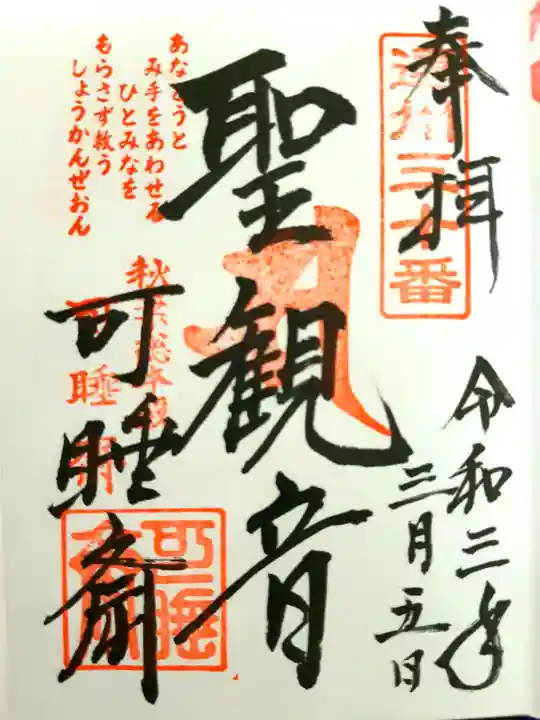 奉拝
遠州三十番
令和三年
三月五日
聖観音
あなとうと
み手をあわせる
ひとみなを
もらさず救う
しょうかんぜおん
秋葉総本殿
可睡斎
可睡